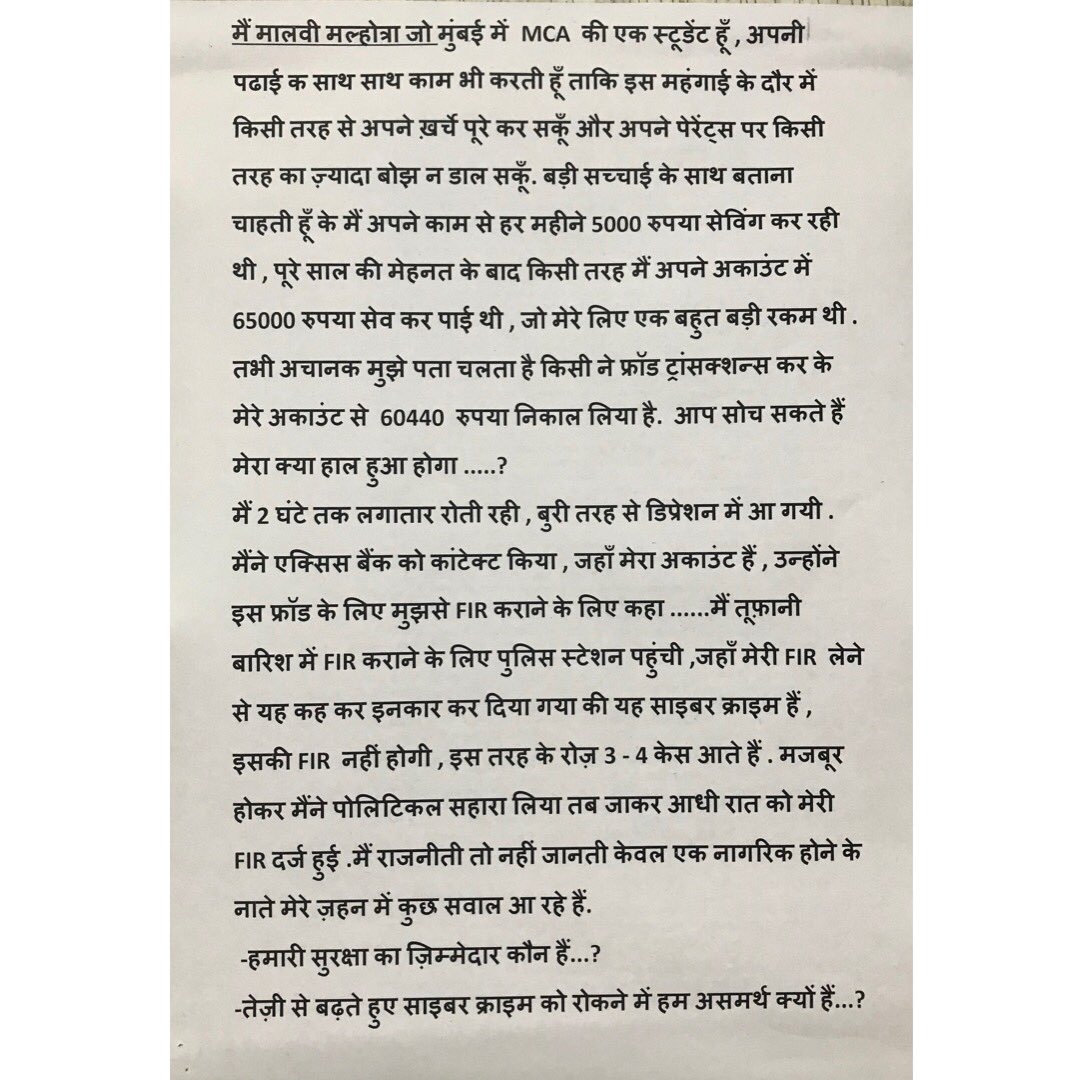 मैं मालवी मल्होत्रा जो मुंबई में MCA की एक स्टूडेंट हूँ , अपनी
पढाई क साथ साथ काम भी करती हूँ ताकि इस महंगाई के दौर में
किसी तरह से अपने ख़र्चे पूरे कर सकूँ और अपने पेरेंट्स पर किसी
तरह का ज़्यादा बोझ न डाल सकूँ. बड़ी सच्चाई के साथ बताना
चाहती हूँ के मैं अपने काम से हर महीने 5000 रुपया सेविंग कर रही
थी , पूरे साल की मेहनत के बाद किसी तरह मैं अपने अकाउंट में
65000 रुपया सेव कर पाई थी , जो मेरे लिए एक बहुत बड़ी रकम थी .
तभी अचानक मुझे पता चलता है किसी ने फ्रॉड ट्रांसक्शन्स कर के
मेरे अकाउंट से 60440 रुपया निकाल लिया है. आप सोच सकते हैं
मेरा क्या हाल हुआ होगा .....?
मैं 2 घंटे तक लगातार रोती रही , बुरी तरह से डिप्रेशन में आ गयी .
मैंने एक्सिस बैंक को कांटेक्ट किया , जहाँ मेरा अकाउंट हैं , उन्होंने
इस फ्रॉड के लिए मुझसे FIR कराने के लिए कहा ......मैं तूफ़ानी
बारिश में FIR कराने के लिए पुलिस स्टेशन पहुंची ,जहाँ मेरी FIR लेने
से यह कह कर इनकार कर दिया गया की यह साइबर क्राइम हैं ,
इसकी FIR नहीं होगी , इस तरह के रोज़ 3 - 4 केस आते हैं . मजबूर
होकर मैंने पोलिटिकल सहारा लिया तब जाकर आधी रात को मेरी
FIR दर्ज हुई .मैं राजनीती तो नहीं जानती केवल एक नागरिक होने के
नाते मेरे ज़हन में कुछ सवाल आ रहे हैं.
-हमारी सुरक्षा का ज़िम्मेदार कौन हैं...?
-तेज़ी से बढ़ते हुए साइबर क्राइम को रोकने में हम असमर्थ क्यों हैं...?